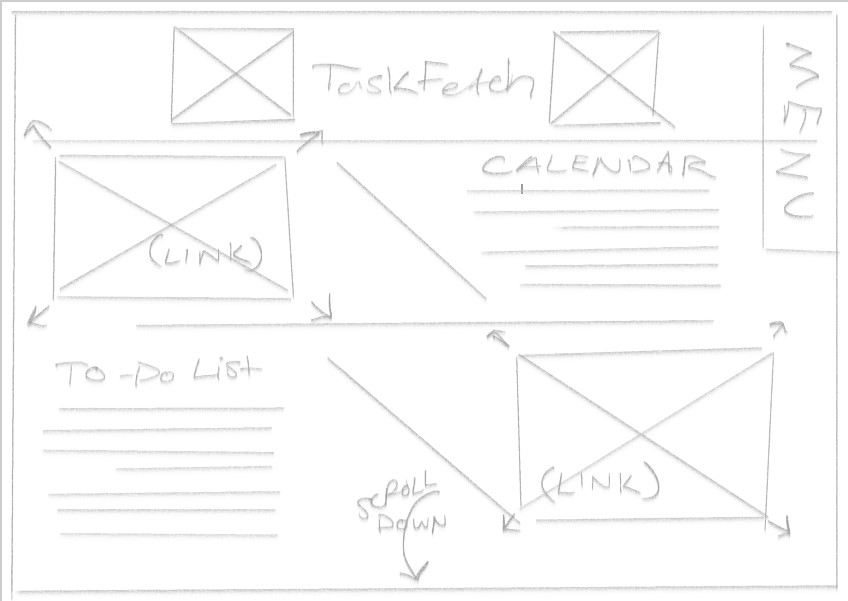 TaskFetch
MENU
CALENDAR
(LINK)
TO-DO List
(LINK)
SCROLL
DOWN